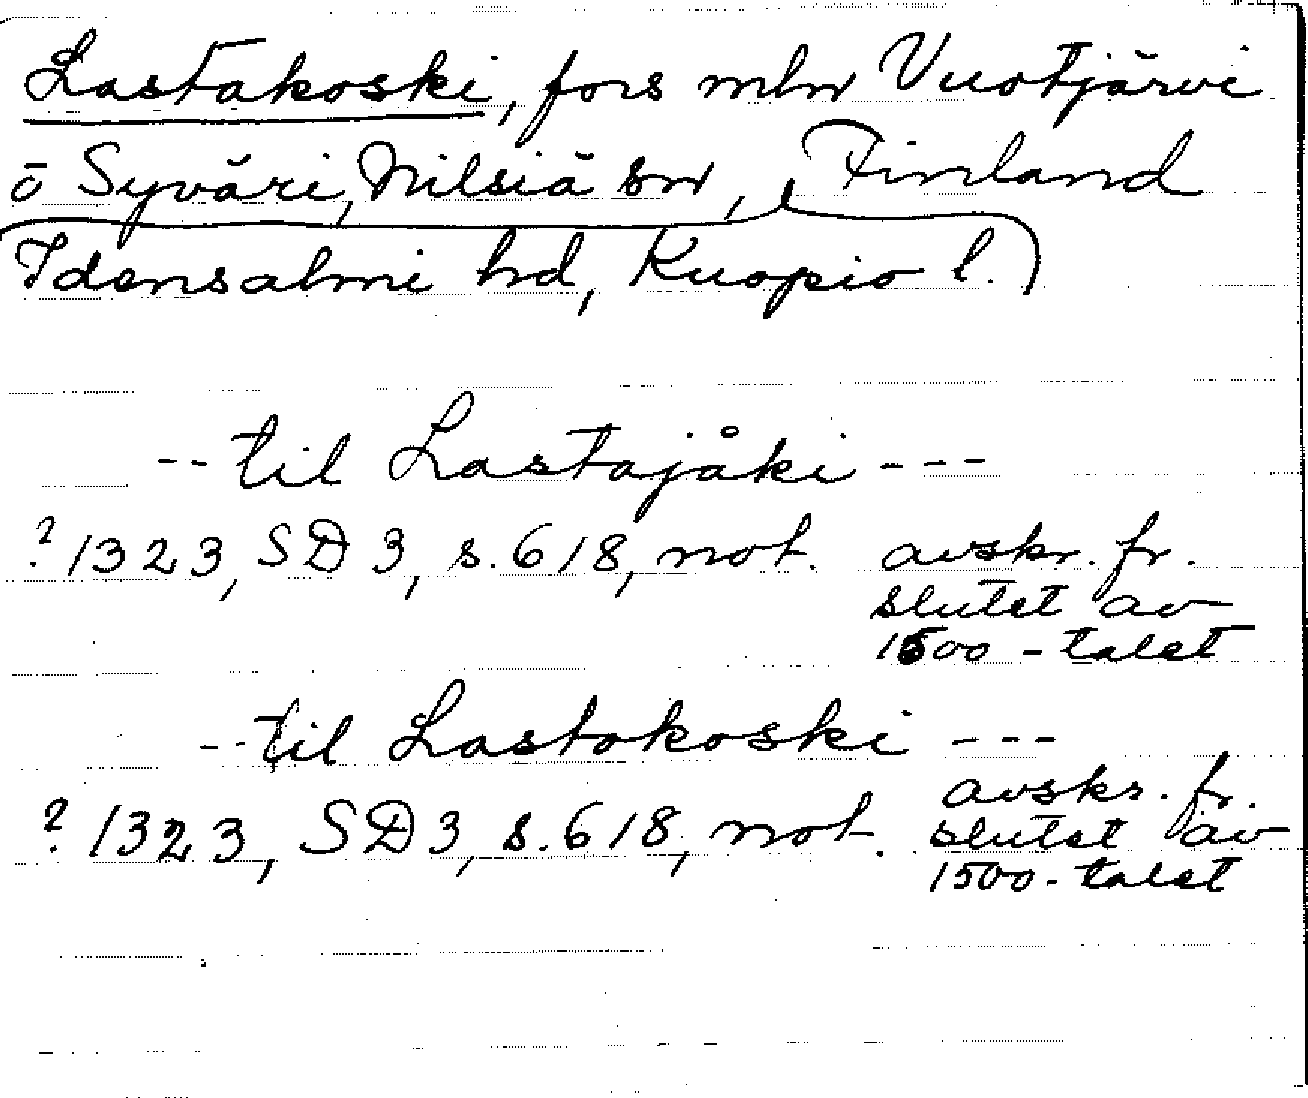 Lastakoski, fors mln Vuotjärvi
o Syväri, Nilsiä sn, Finland
Idensalmi hd, Kuopio l.)
-- til Lastajåki ---
? 1323, SD 3, s. 618, not. avskr. fr.
slutet av
1500-talet
-- til Lastakoski ---
? 1323, SD 3, s. 618, not. avskr. fr.
slutet av
1500-talet